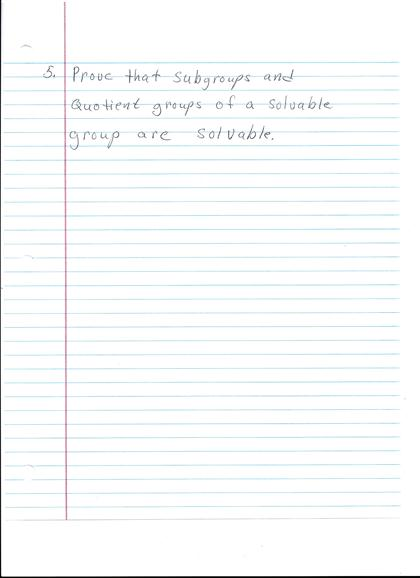 5. Prove that subgroups and
Quotient groups of a solvable
group are solvable.